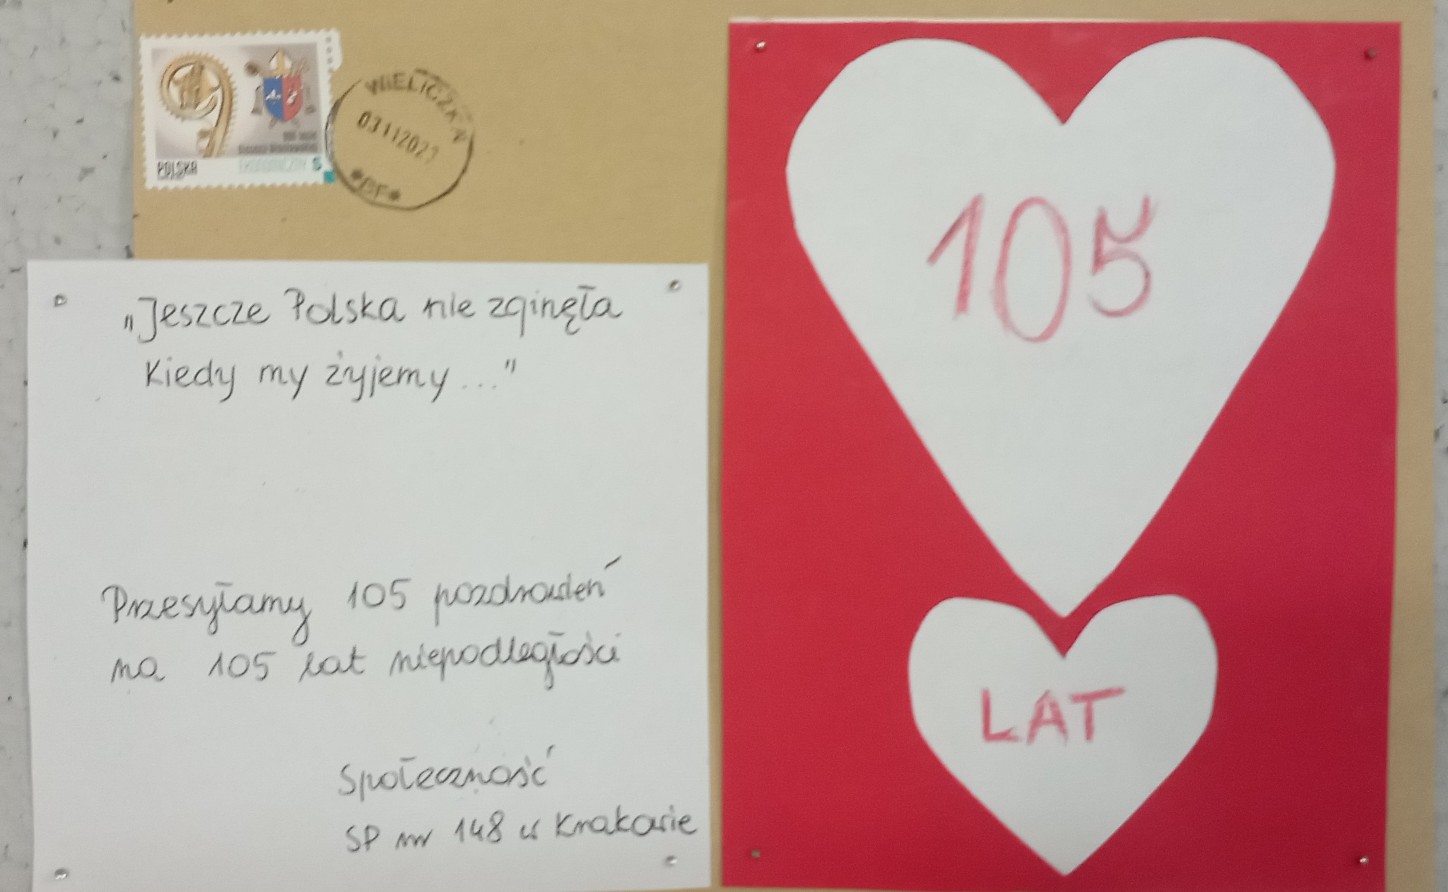 POLSKA
EKONOMICZNY S
WIELICZKA
03112023
„Jeszcze Polska nie zginęła
Kiedy my żyjemy..."
Przesyłamy 105 pozdrowień
na 105 lat niepodległości
Społeczność
SP nr 148 w Krakowie
105
LAT